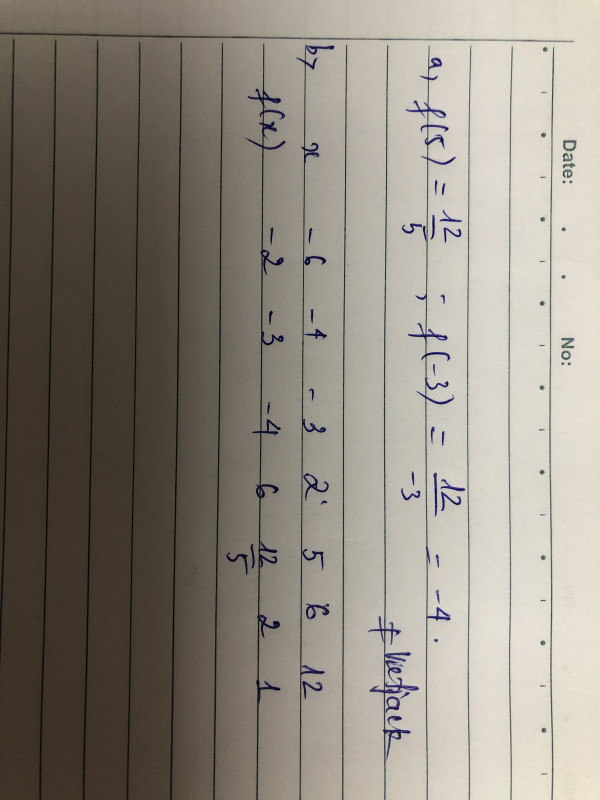 Date: No:
a, f(5) = 12/5 ; f(-3) = 12/-3 = -4.
# Vietjack
b, x -6 -4 -3 2 5 6 12
f(x) -2 -3 -4 6 12/5 2 1